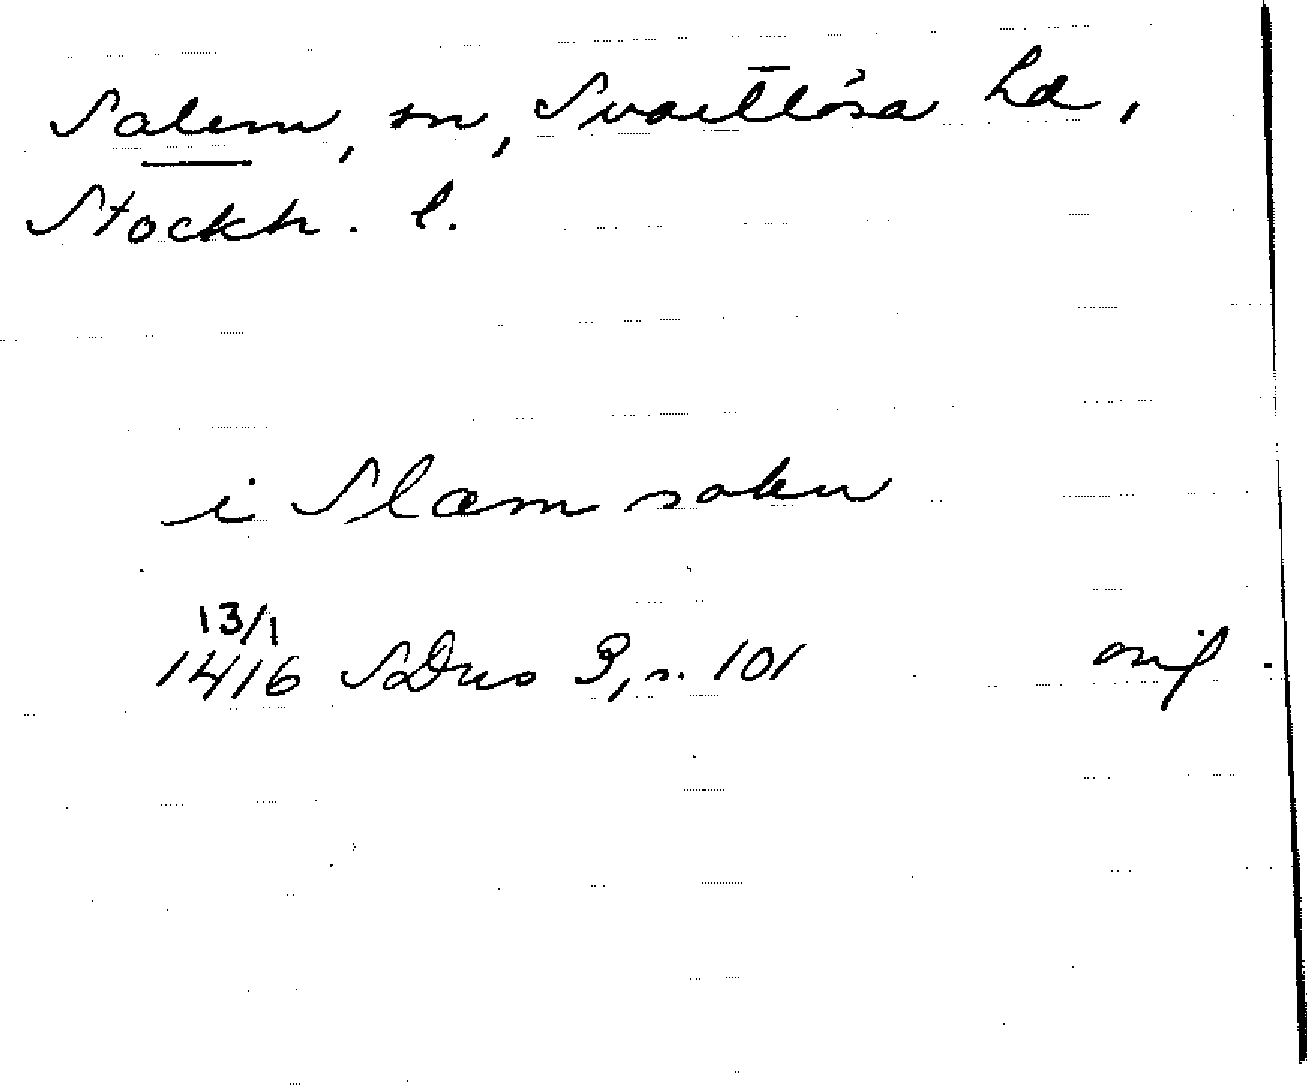 Salem, sn, Svartlösa hd,
Stockh. l.
i Slæm sokn
13/1
1416 SDns 3, s. 101 orig